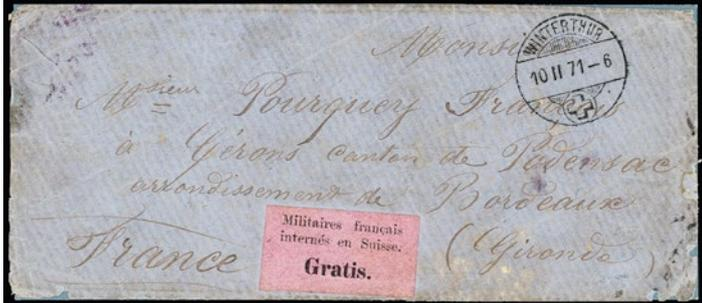 Monsieur
WINTERTHUR
10 II 71 – 6
Msieur Pourquey François
à Gérons canton de Podensac
arrondissement de Bordeaux
(Gironde)
France
Militaires français
internés en Suisse.
Gratis.